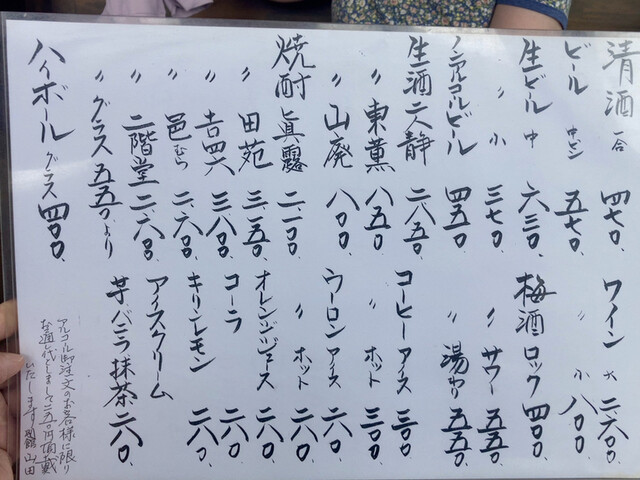 清酒 一合 四七〇、
ビール 中ビン 五七〇、
生ビール 中 六三〇、
〃 小 三七〇、
ノンアルコールビール 四五〇、
生酒 二人静 二、八五〇
〃 東薫 八五〇、
〃 山廃 八〇〇、
焼酎 眞露 二、二〇〇
〃 田苑 三、一五〇
〃 吉四六 三、八〇〇
〃 邑むら 二、六〇〇
〃 二階堂 二、六〇〇、
〃 グラス 五五〇、より
ハイボール グラス 四〇〇、
ワイン 大 二、六〇〇
〃 小 八〇〇、
梅酒 ロック 四〇〇、
〃 サワー 五五〇、
〃 湯わり 五五〇、
コーヒー アイス 三〇〇
〃 ホット 三〇〇
ウーロン アイス 二六〇
〃 ホット 二六〇、
オレンジジュース 二六〇
コーラ 二六〇
キリンレモン 二六〇、
アイスクリーム
芋、バニラ、抹茶 二八〇、
アルコール御注文のお客様に限り
お通し代としまして二五〇円頂戴
いたします 山田